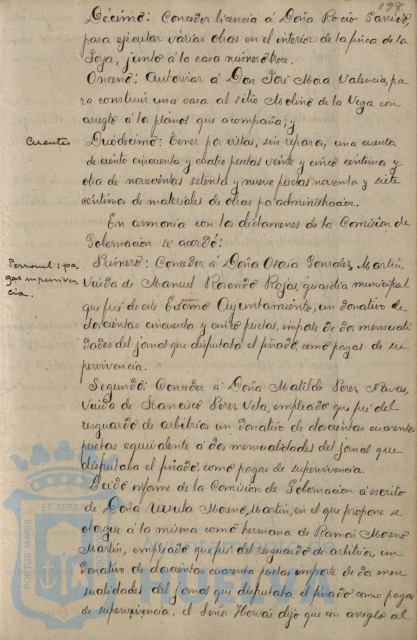 198
Décimo: Conceder licencia á Doña Rocio Garrido,
para ejecutar varias obras en el interior de la finca de la
Joya, junto á la casa número trece.
Onceno: Autorizar á Don José Mora Valencia, pa
ra construir una casa al sitio Molino de la Vega con
arreglo á la planos que acompaña; y
Cuentas
Duodécimo: Tener por vistas, sin reparo, una cuenta
de ciento cincuenta y cuatro pesetas veinte y cinco centimos y
otra de novecientas setenta y nueve pesetas noventa y siete
centimos de materiales de obras por administracion.
En armonia con los dictámenes de la Comisión de
Gobernacion se acordó:
Personal: pa
gas superviven
cia.
Primero: Conceder á Doña Gonzalez Martin,
Viuda de Manuel Rosendo Rojas, guardia municipal
que fué de este Excmo Ayuntamiento, un donativo de
doscientas cincuenta y cinco pesetas, importe de dos mensuali
dades del jornal que disfrutaba el finado, como pagas de su
pervivencia.
Segundo: Conceder á Doña Matilde Perez Navas,
Viuda de Francisco Perez Vela, empleado que fué del
resguardo de arbitrios un donativo de doscientas cuarenta
pesetas equivalente á dos mensualidades del jornal que
disfrutaba el finado, como pagas de supervivencia
Leido informe de la Comisión de Gobernacion á escrito
de Doña Ursula Moreno Martin, en el que propone se
otorgue á la misma como hermana de Ramón Moreno
Martin, empleado que fué del resguardo de arbitrios, un
donativo de doscientas cuarenta pesetas importe de dos men
sualidades del jornal que disfrutaba el finado como pagas
de supervivencia, el Señor Hervás dijo que con arreglo al
PORTUS MARIS
ET TERRAE
Ayuntamiento de
HUELVA